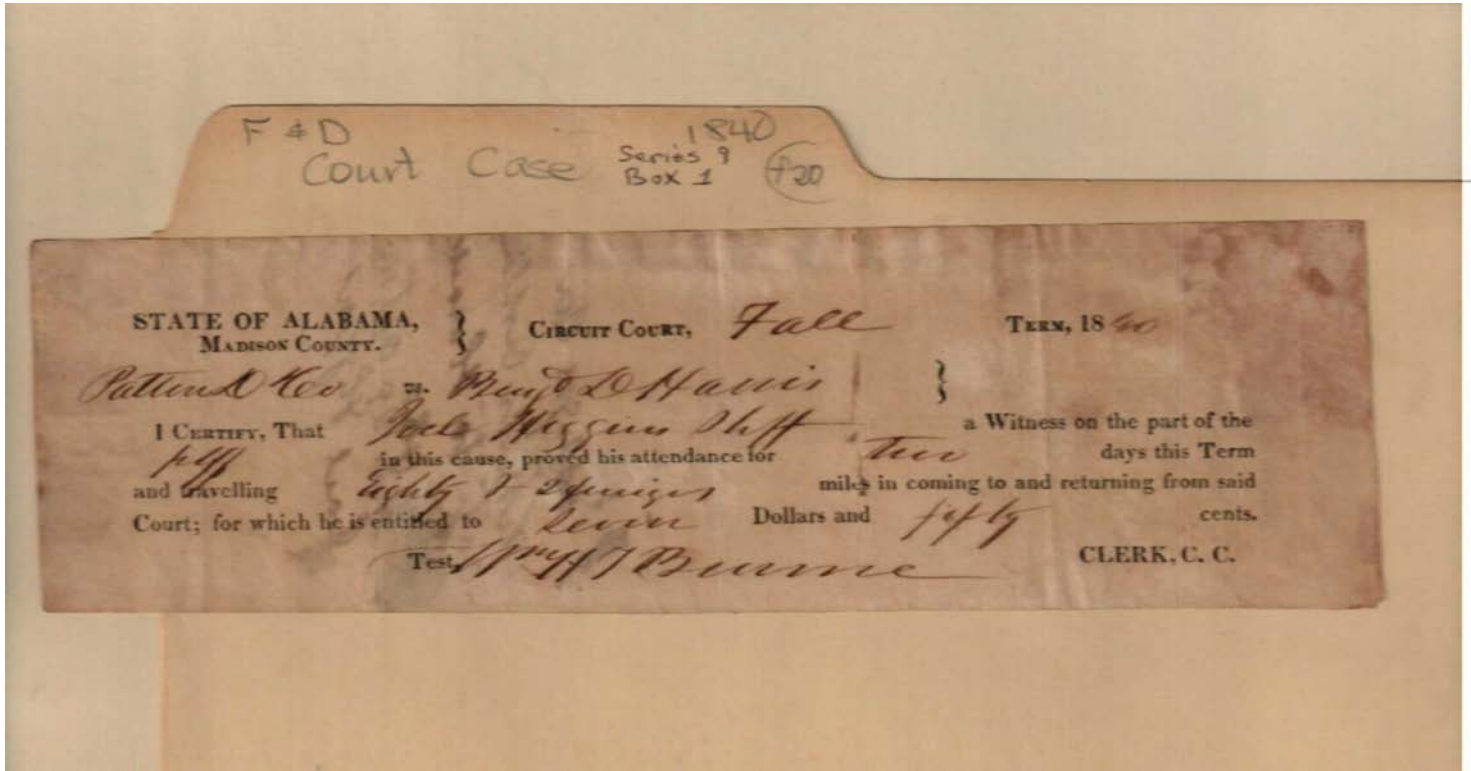 F & D 1840
Court Case Series 9
Box 1 f20
STATE OF ALABAMA, } CIRCUIT COURT, Fall TERM, 1840
MADISON COUNTY.
Patten & Co vs. Benj D Harris }
I CERTIFY, That Joel Higgins a Witness on the part of the
plff in this cause, proved his attendance for two days this Term
and travelling Eighty & 2 miles in coming to and returning from said
Court; for which he is entitled to Seven Dollars and fifty cents.
Test, CLERK, C. C.